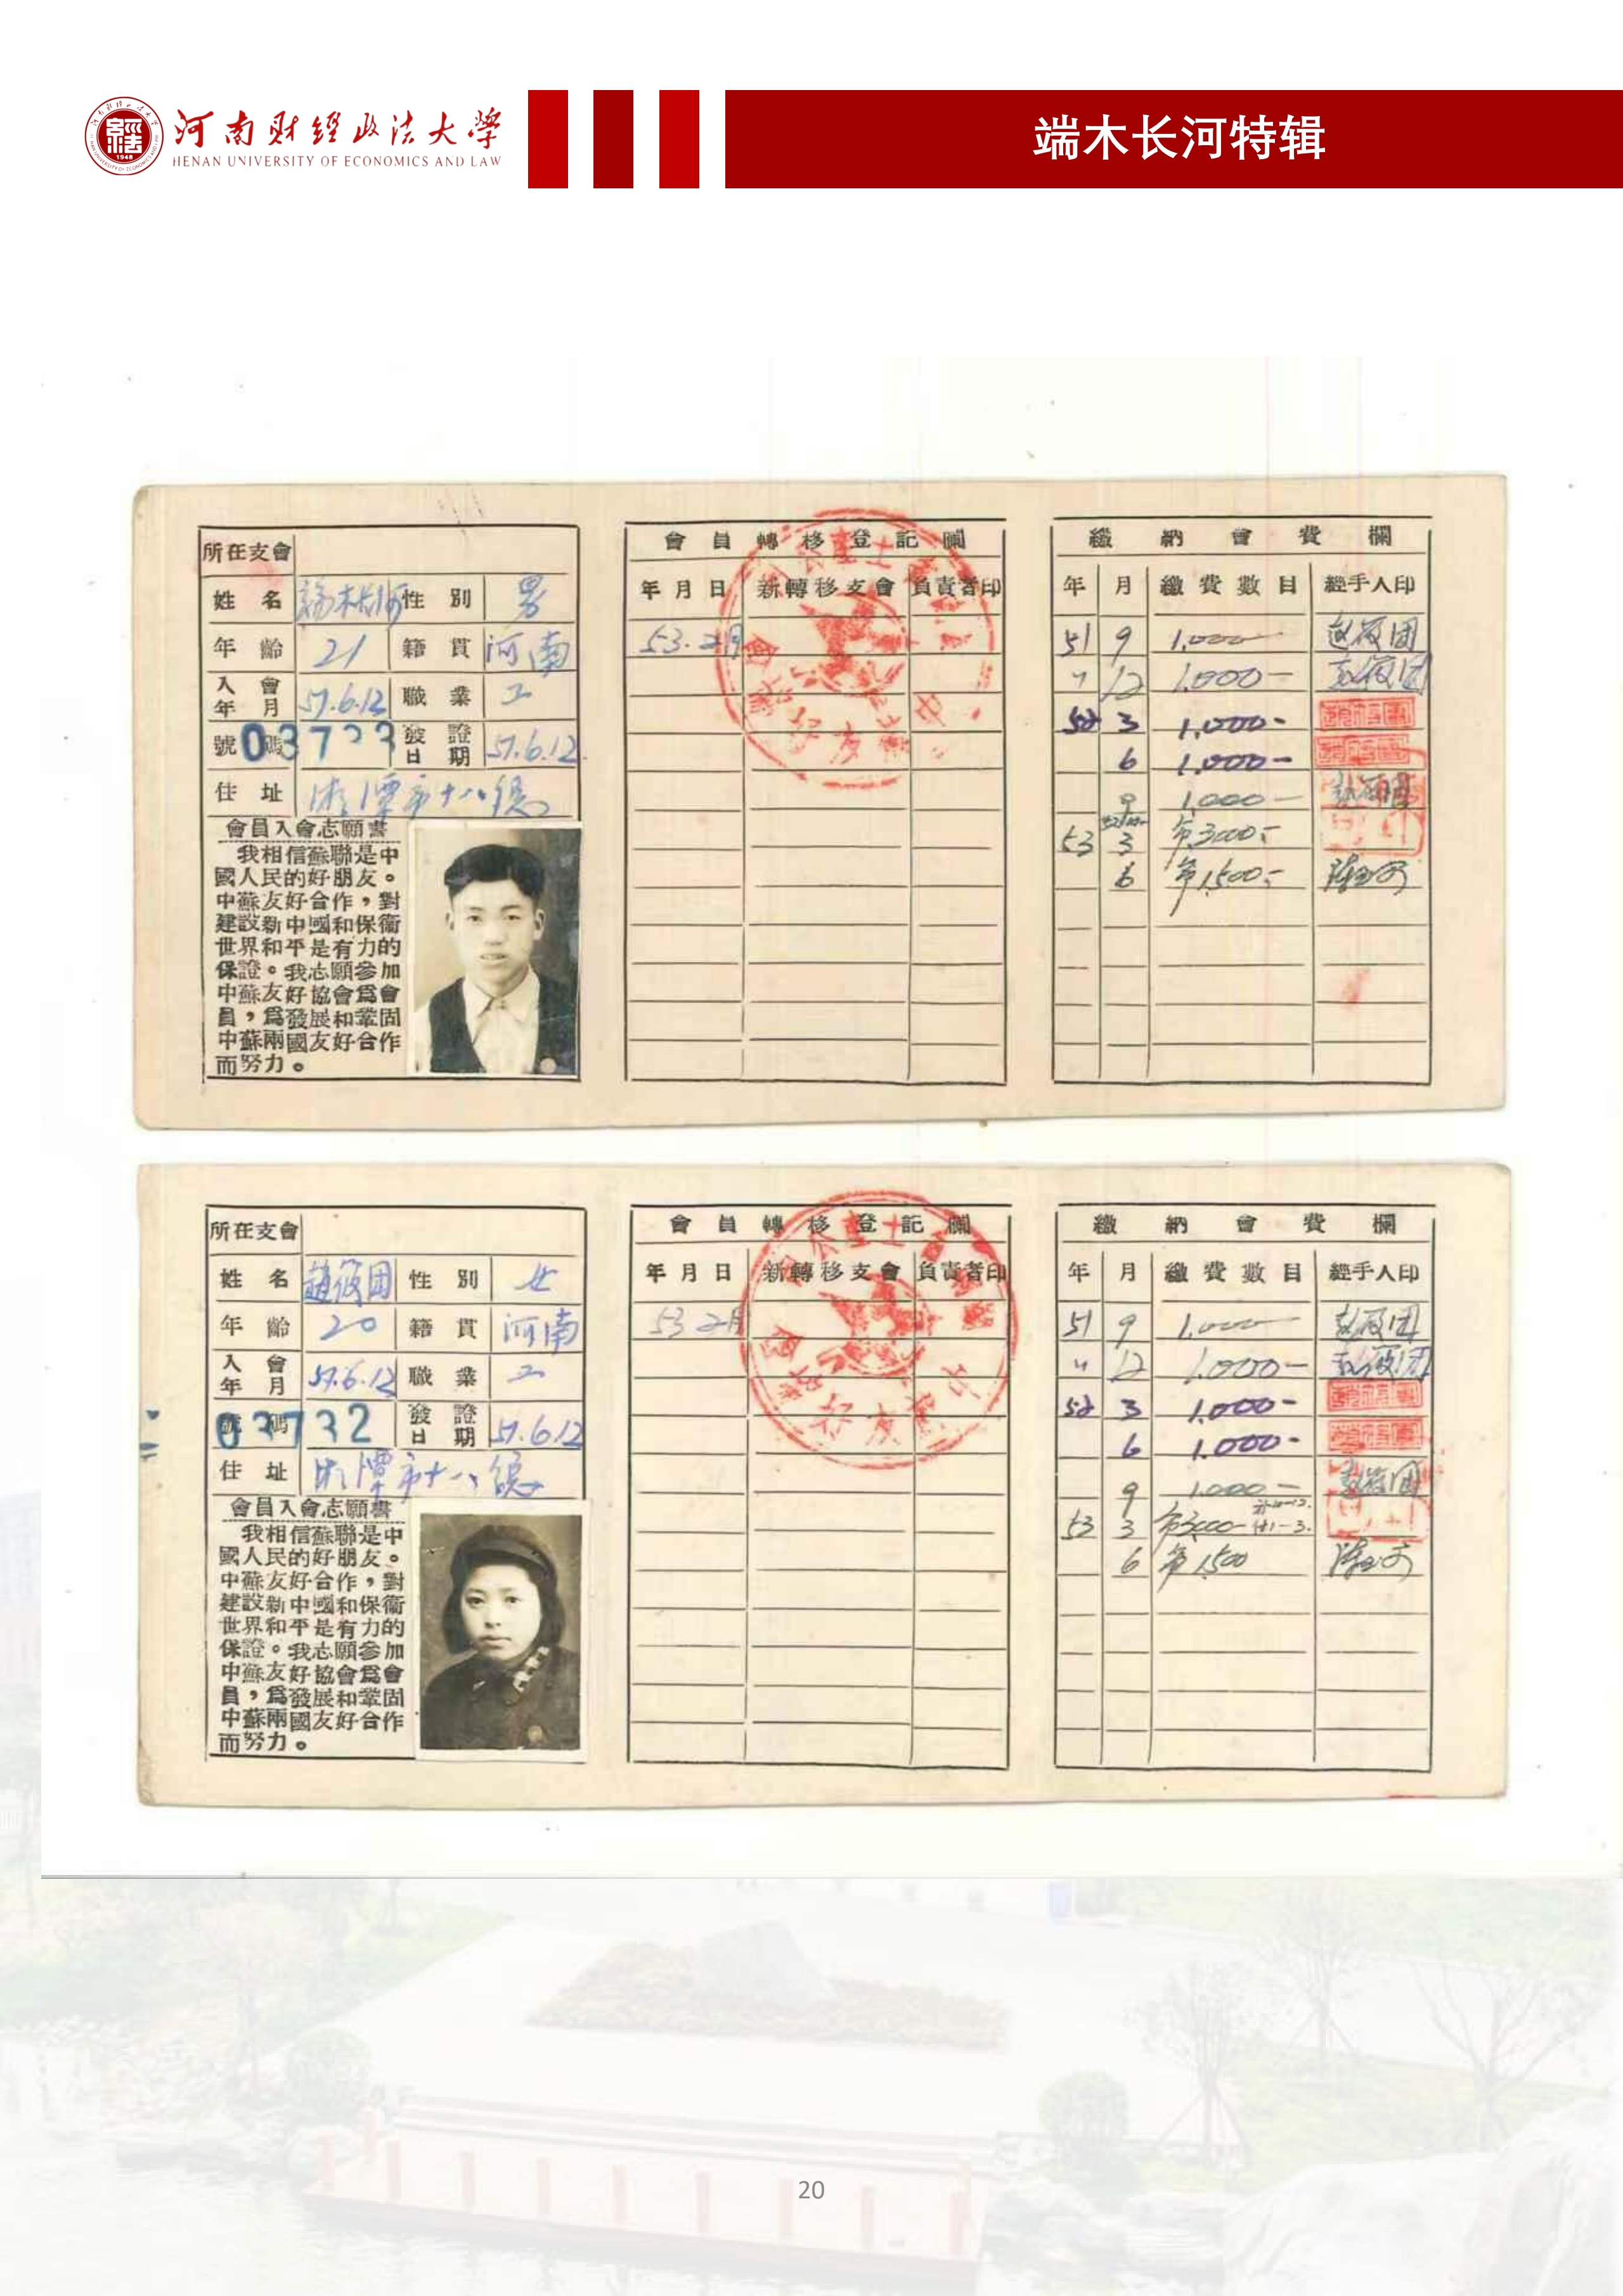 河南财经政法大学
HENAN UNIVERSITY OF ECONOMICS AND LAW
端木长河特辑
所在支會
姓名 端木长河 性別 男
年齡 21 籍貫 河南
入會年月 51.6.12 職業 工
號碼 03733 發證日期 51.6.12
住址 湘潭市十八總
會員入會志願書
我相信蘇聯是中
國人民的好朋友。
中蘇友好合作，對
建設新中國和保衞
世界和平是有力的
保證。我志願參加
中蘇友好協會爲會
員，爲發展和鞏固
中蘇兩國友好合作
而努力。
會員轉移登記欄
年月日 新轉移支會 負責者印
53.2月
繳納會費欄
年 月 繳費數目 經手人印
51 9 1.000 赵筱团
〃 12 1.000- 赵筱团
52 3 1.000-
6 1.000-
9 1.000- 赵筱團
53 3 币3000.-
6 币1500.-
所在支會
姓名 趙筱团 性別 女
年齡 20 籍貫 河南
入會年月 51.6.12 職業 工
號碼 03732 發證日期 51.6.12
住址 湘潭市十八總
會員入會志願書
我相信蘇聯是中
國人民的好朋友。
中蘇友好合作，對
建設新中國和保衞
世界和平是有力的
保證。我志願參加
中蘇友好協會爲會
員，爲發展和鞏固
中蘇兩國友好合作
而努力。
會員轉移登記欄
年月日 新轉移支會 負責者印
53 2月
繳納會費欄
年 月 繳費數目 經手人印
51 9 1.000 赵筱团
〃 12 1.000- 赵筱团
52 3 1.000-
6 1.000-
9 1.000- 赵筱團
53 3 币3000-
6 币1500
20